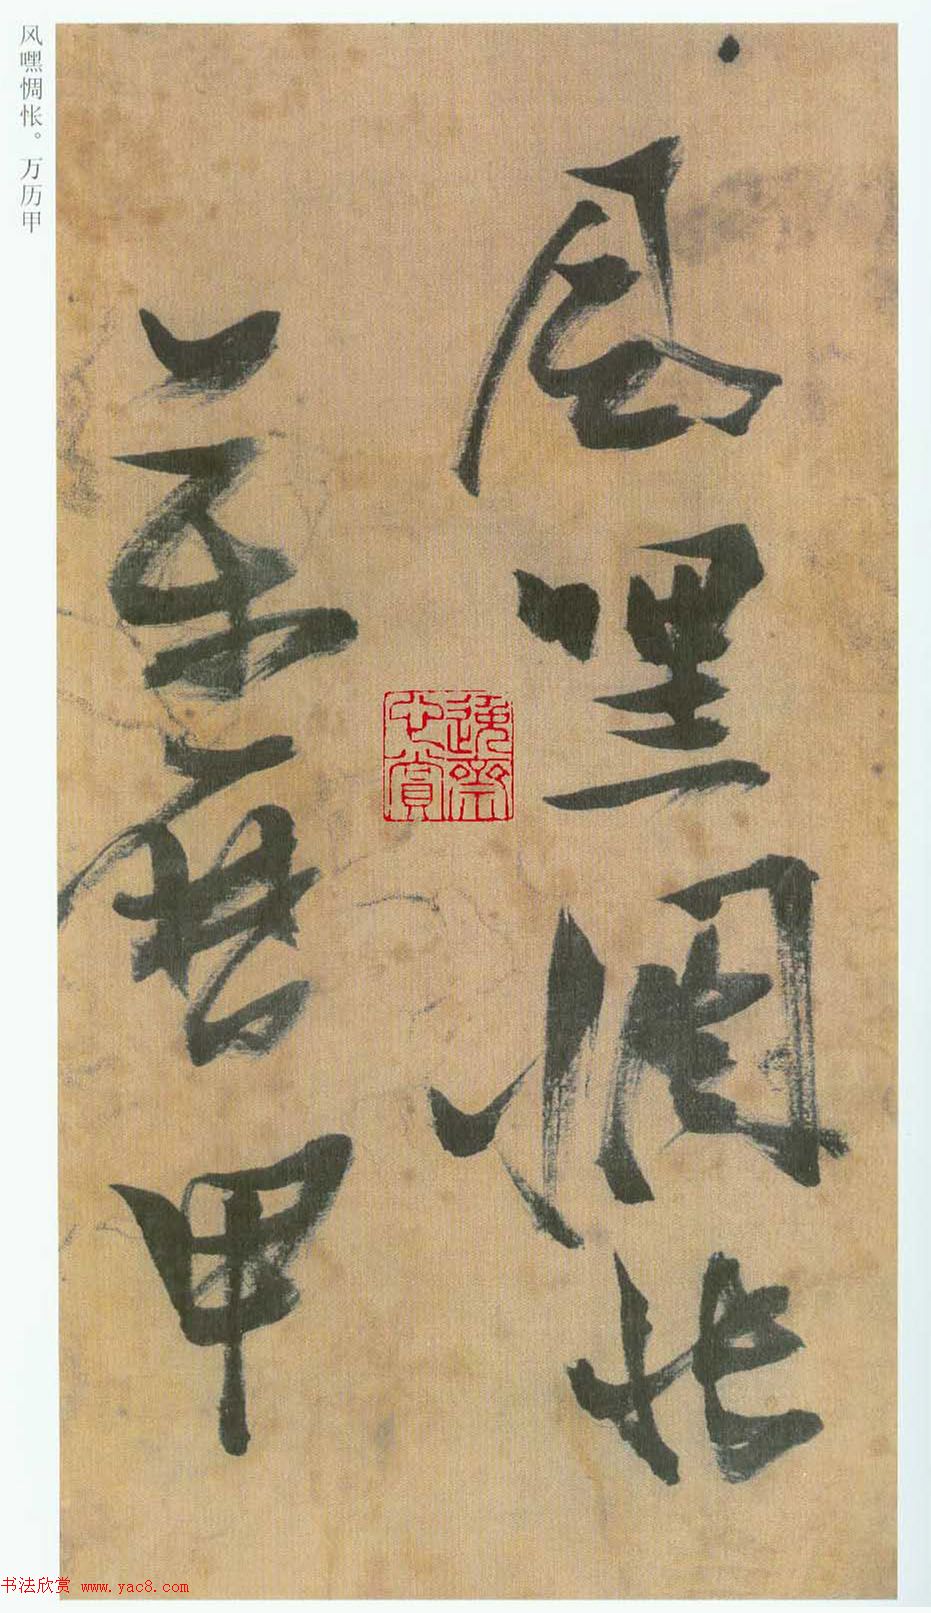 風嘿惆悵
萬曆甲
风嘿惆怅。万历甲
书法欣赏 www.yac8.com